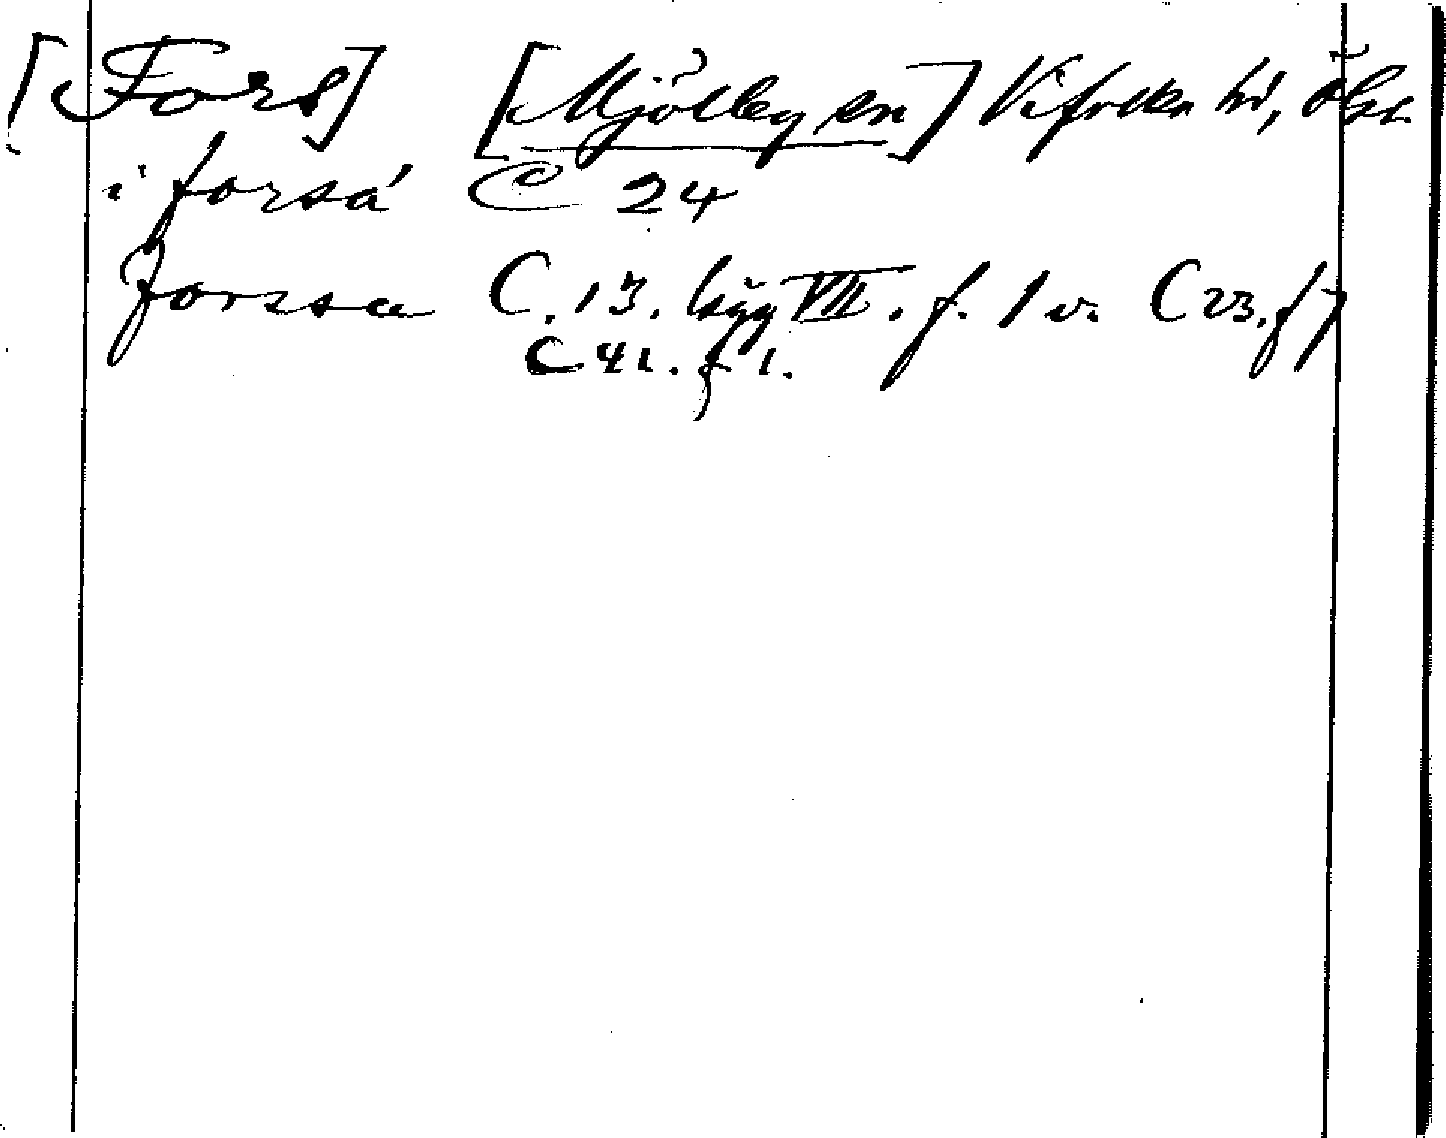 [Fors] [Mjölby sn] Vifolka hd, Ögl.
i forsá C 24
Forssa C. 13. lägg VII. f. 1 v. C 23. f 7
C 41. f 1.